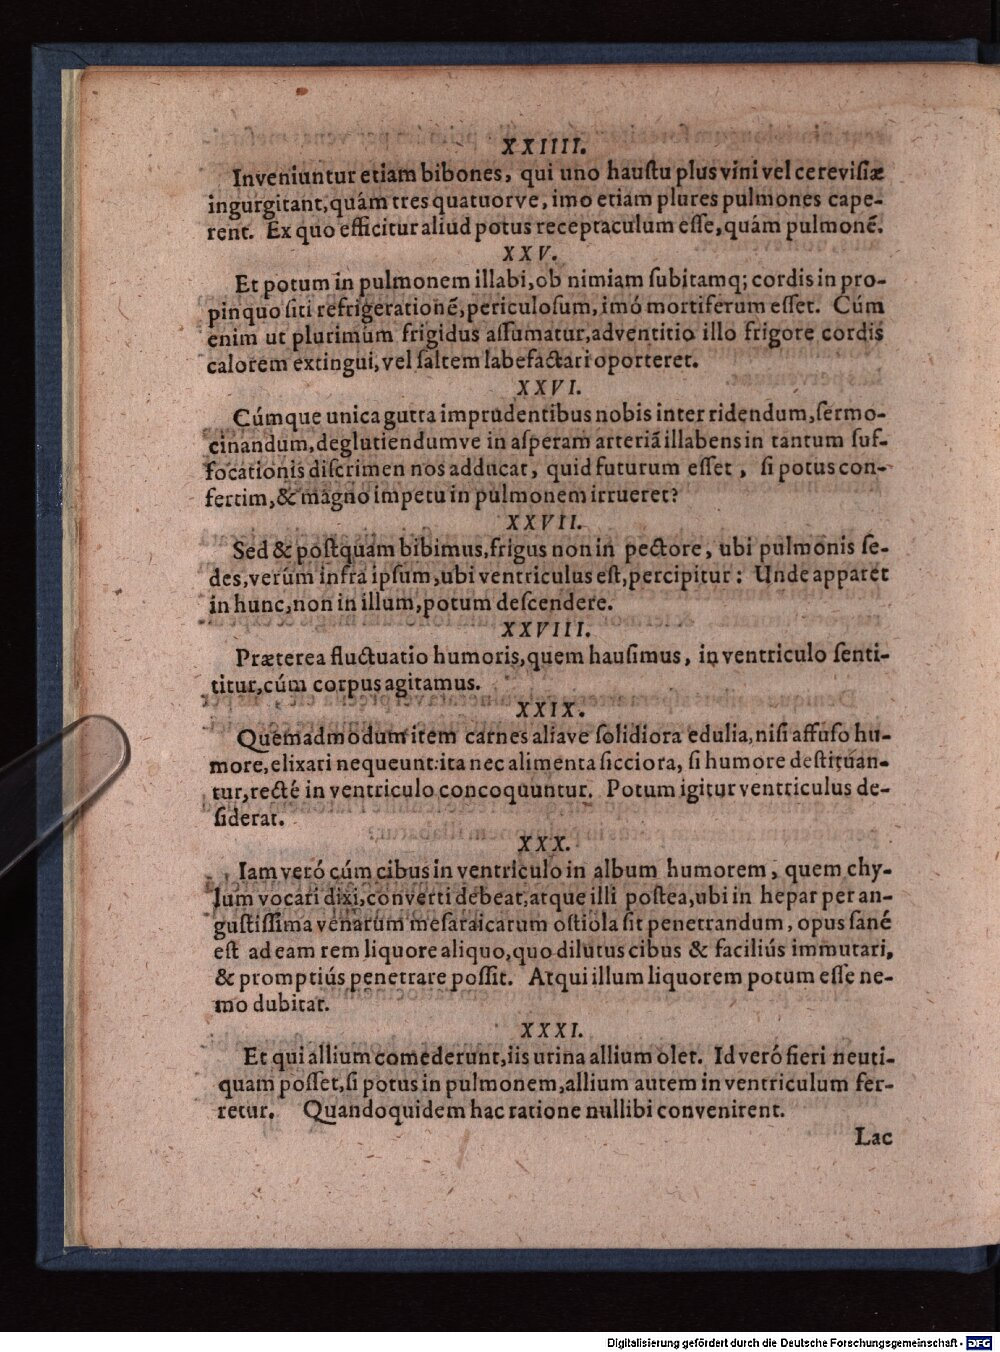 XXIIII.
Inveniuntur etiam bibones, qui uno hauſtu plus vini vel cereviſiæ
ingurgitant, quám tres quatuorve, imo etiam plures pulmones cape-
rent. Ex quo efficitur aliud potus receptaculum eſſe, quám pulmonẽ.
XXV.
Et potum in pulmonem illabi, ob nimiam ſubitamq; cordis in pro-
pinquo ſiti refrigerationẽ, periculoſum, imó mortiferum eſſet. Cúm
enim ut plurimúm frigidus aſſumatur, adventitio illo frigore cordis
calorem extingui, vel ſaltem labefactari oporteret.
XXVI.
Cúmque unica gutta imprudentibus nobis inter ridendum, ſermo-
cinandum, deglutiendumve in aſperam arteriã illabens in tantum ſuf-
focationis diſcrimen nos adducat, quid futurum eſſet, ſi potus con-
fertim, & magno impetu in pulmonem irrueret?
XXVII.
Sed & poſtquam bibimus, frigus non in pectore, ubi pulmonis ſe-
des, verúm infra ipſum, ubi ventriculus eſt, percipitur: Unde apparet
in hunc, non in illum, potum deſcendere.
XXVIII.
Præterea fluctuatio humoris, quem hauſimus, in ventriculo ſenti-
titur, cúm corpus agitamus.
XXIX.
Quemadmodum item carnes aliave ſolidiora edulia, niſi affuſo hu-
more, elixari nequeunt: ita nec alimenta ſicciora, ſi humore deſtituan-
tur, recté in ventriculo concoquuntur. Potum igitur ventriculus de-
ſiderat.
XXX.
Iam veró cúm cibus in ventriculo in album humorem, quem chy-
lum vocari dixi, converti debeat, atque illi poſtea, ubi in hepar per an-
guſtiſſima venarum meſaraicarum oſtiola ſit penetrandum, opus ſané
eſt ad eam rem liquore aliquo, quo dilutus cibus & faciliús immutari,
& promptiús penetrare poſſit. Atqui illum liquorem potum eſſe ne-
mo dubitat.
XXXI.
Et qui allium comederunt, iis urina allium olet. Id veró fieri neuti-
quam poſſet, ſi potus in pulmonem, allium autem in ventriculum fer-
retur. Quandoquidem hac ratione nullibi convenirent.
Lac
Digitalisierung gefördert durch die Deutsche Forschungsgemeinschaft - DFG